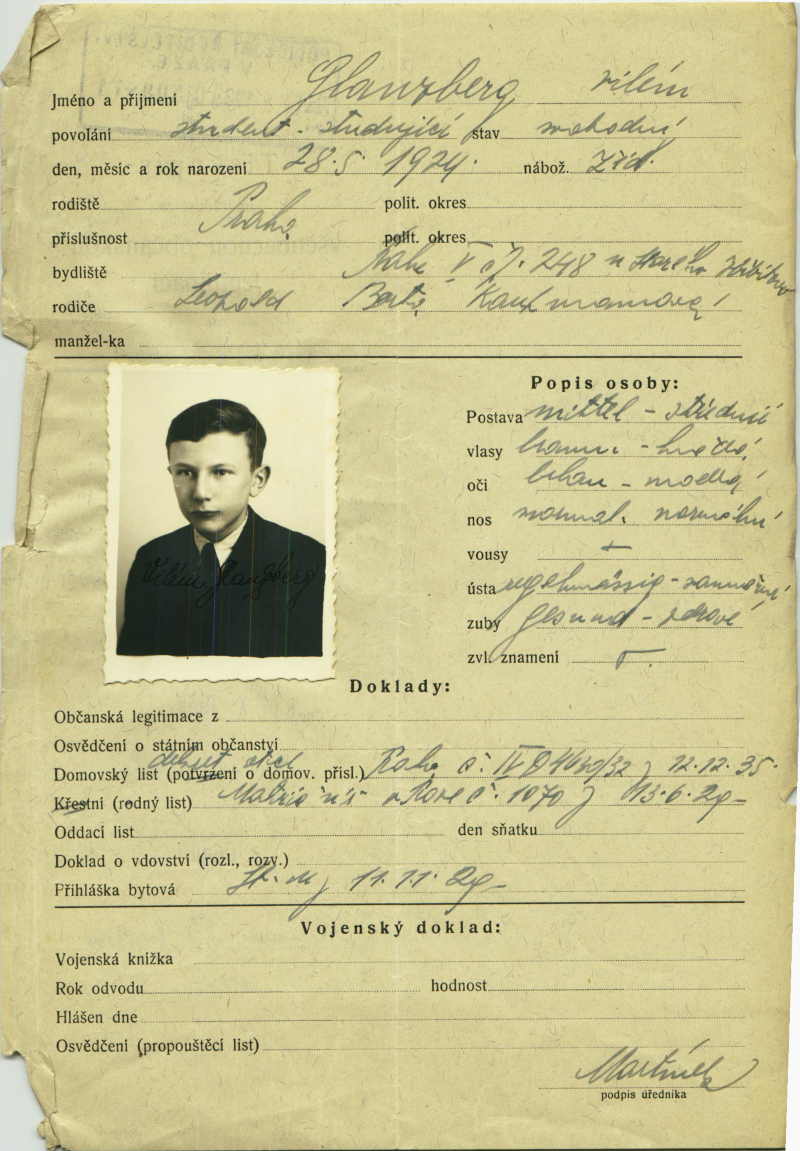 Jméno a příjmení Glanzberg Vilém
povolání student - studující stav svobodný
den, měsíc a rok narození 28.5.1924. nábož. žid.
rodiště Praha polit. okres
příslušnost polit. okres
bydliště Praha V čp. 248 u starého hřbitova
rodiče Leopold Berta Kaufmannová
manžel-ka
Popis osoby:
Postava mittel - střední
vlasy braun - hnědé
oči blau - modré
nos normal. normální
vousy –
ústa regelmässig - souměrná
zuby gesund - zdravé
zvl. znamení
Vilém Glanzberg
Doklady:
Občanská legitimace z
Osvědčení o státním občanství
otce
Domovský list (potvrzení o domov. přísl.) Praha č. IV 12.12.35.
Křestní (rodný list) č. 1070 13.6.29
Oddací list den sňatku
Doklad o vdovství (rozl., rozv.)
Přihláška bytová 11.11.29
Vojenský doklad:
Vojenská knížka
Rok odvodu hodnost
Hlášen dne
Osvědčení (propouštěcí list)
Martínek
podpis úředníka